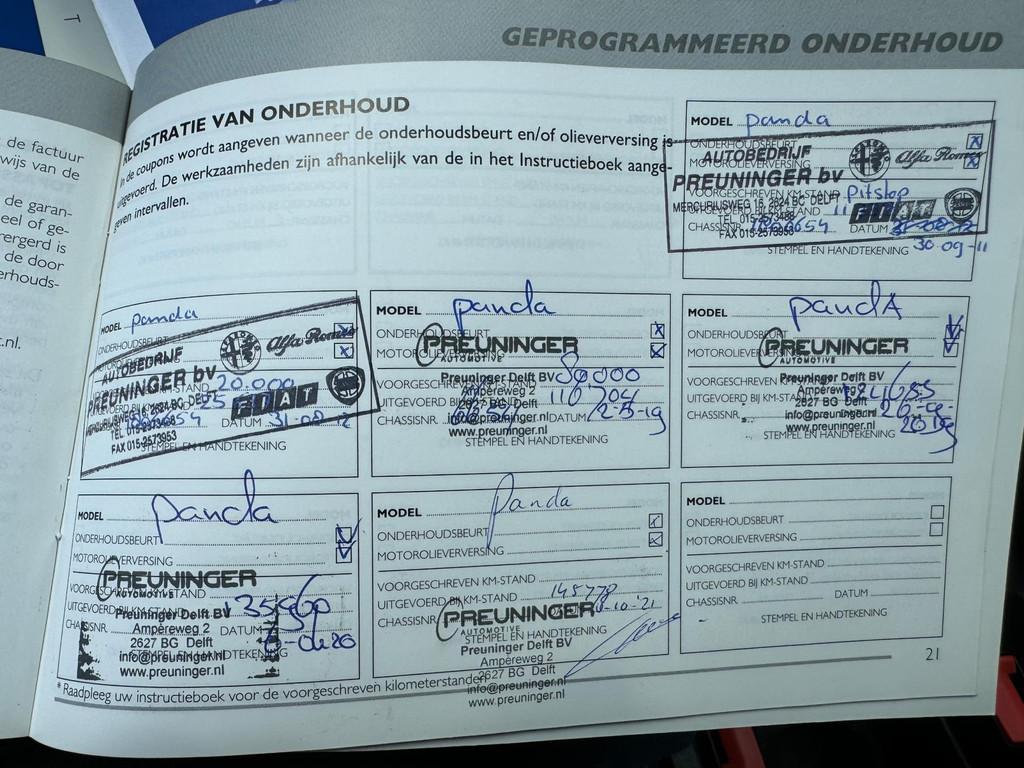 T
GEPROGRAMMEERD ONDERHOUD
de factuur
wijs van de
de garan-
eel of ge-
ergerd is
de door
erhouds-
.nl.
REGISTRATIE VAN ONDERHOUD
In de coupons wordt aangeven wanneer de onderhoudsbeurt en/of olieverversing is
uitgevoerd. De werkzaamheden zijn afhankelijk van de in het Instructieboek aange-
geven intervallen.
MODEL panda
ONDERHOUDSBEURT
MOTOROLIEVERVERSING
AUTOBEDRIJF
PREUNINGER bv
Alfa Romeo
VOORGESCHREVEN KM-STAND Pitstop
MERCURIUSWEG 16, 2624 BC DELFT
UITGEVOERD BIJ KM-STAND
TEL. 015-2573488
FAX 015-2573953
FIAT
CHASSISNR. DATUM 31-08-12
STEMPEL EN HANDTEKENING 30-09-11
MODEL panda
ONDERHOUDSBEURT
AUTOBEDRIJF
PREUNINGER bv
Alfa Romeo
20.000
MERCURIUSWEG 16, 2624 BC DELFT
TEL. 015-2573488
FAX 015-2573953
FIAT
DATUM 31-08-12
STEMPEL EN HANDTEKENING
MODEL panda
ONDERHOUDSBEURT
MOTOROLIEVERVERSING
PREUNINGER
AUTOMOTIVE
VOORGESCHREVEN KM-STAND
Preuninger Delft BV
UITGEVOERD BIJ KM-STAND 110704
Ampèreweg 2
2627 BG Delft
CHASSISNR. DATUM
info@preuninger.nl
www.preuninger.nl
STEMPEL EN HANDTEKENING
MODEL pandA
ONDERHOUDSBEURT
MOTOROLIEVERVERSING
PREUNINGER
AUTOMOTIVE
VOORGESCHREVEN KM-STAND
Preuninger Delft BV
UITGEVOERD BIJ KM-STAND
Ampèreweg 2
2627 BG Delft
CHASSISNR.
info@preuninger.nl
www.preuninger.nl
STEMPEL EN HANDTEKENING
MODEL panda
ONDERHOUDSBEURT
MOTOROLIEVERVERSING
PREUNINGER
AUTOMOTIVE
UITGEVOERD BIJ KM-STAND
Preuninger Delft BV
CHASSISNR. DATUM
Ampèreweg 2
2627 BG Delft
info@preuninger.nl
STEMPEL EN HANDTEKENING
www.preuninger.nl
MODEL Panda
ONDERHOUDSBEURT
MOTOROLIEVERVERSING
VOORGESCHREVEN KM-STAND
UITGEVOERD BIJ KM-STAND 145778
CHASSISNR.
PREUNINGER
AUTOMOTIVE
STEMPEL EN HANDTEKENING
Preuninger Delft BV
Ampèreweg 2
2627 BG Delft
info@preuninger.nl
www.preuninger.nl
MODEL
ONDERHOUDSBEURT
MOTOROLIEVERVERSING
VOORGESCHREVEN KM-STAND
UITGEVOERD BIJ KM-STAND
CHASSISNR. DATUM
STEMPEL EN HANDTEKENING
* Raadpleeg uw instructieboek voor de voorgeschreven kilometerstanden
21